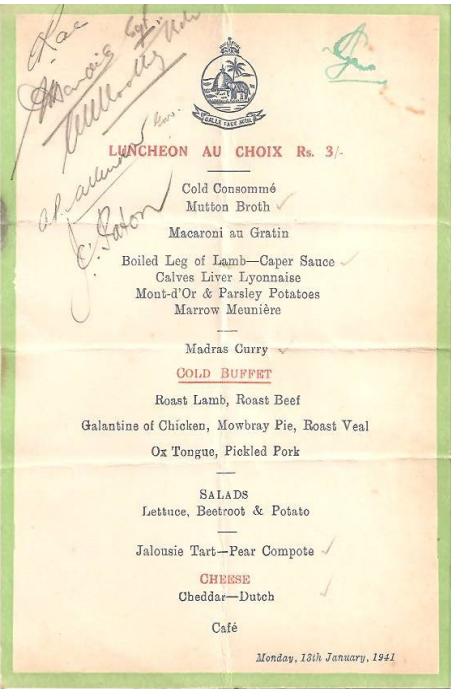 GALLE FACE HOTEL
LUNCHEON AU CHOIX Rs. 3/-
Cold Consommé
Mutton Broth
Macaroni au Gratin
Boiled Leg of Lamb—Caper Sauce
Calves Liver Lyonnaise
Mont-d'Or & Parsley Potatoes
Marrow Meunière
Madras Curry
COLD BUFFET
Roast Lamb, Roast Beef
Galantine of Chicken, Mowbray Pie, Roast Veal
Ox Tongue, Pickled Pork
SALADS
Lettuce, Beetroot & Potato
Jalousie Tart—Pear Compote
CHEESE
Cheddar—Dutch
Café
Monday, 13th January, 1941